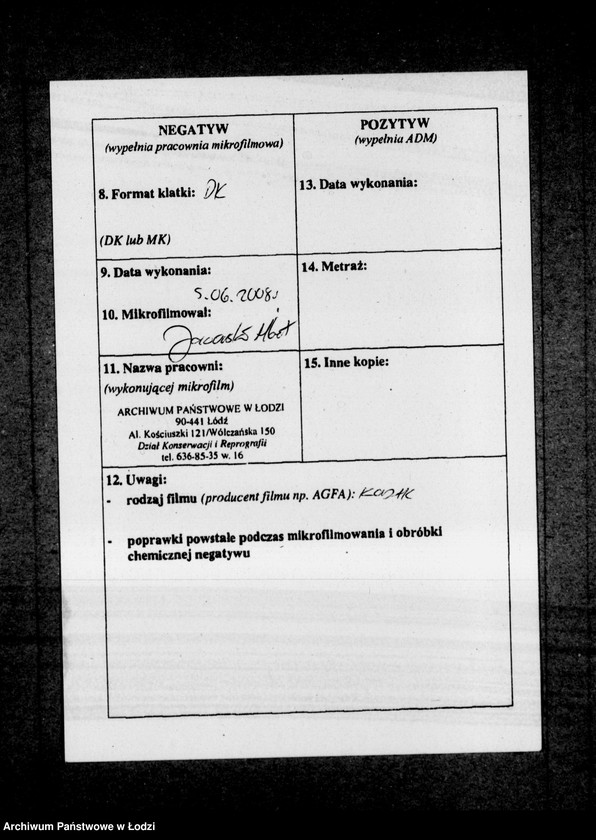 NEGATYW
(wypełnia pracownia mikrofilmowa)
8. Format klatki: DK
(DK lub MK)
9. Data wykonania:
5.06.2008
10. Mikrofilmował:
11. Nazwa pracowni:
(wykonującej mikrofilm)
ARCHIWUM PAŃSTWOWE W ŁODZI
90-441 Łódź
Al. Kościuszki 121/Wólczańska 150
Dział Konserwacji i Reprografii
tel. 636-85-35 w. 16
POZYTYW
(wypełnia ADM)
13. Data wykonania:
14. Metraż:
15. Inne kopie:
12. Uwagi:
- rodzaj filmu (producent filmu np. AGFA): KODAK
- poprawki powstałe podczas mikrofilmowania i obróbki
chemicznej negatywu
Archiwum Państwowe w Łodzi